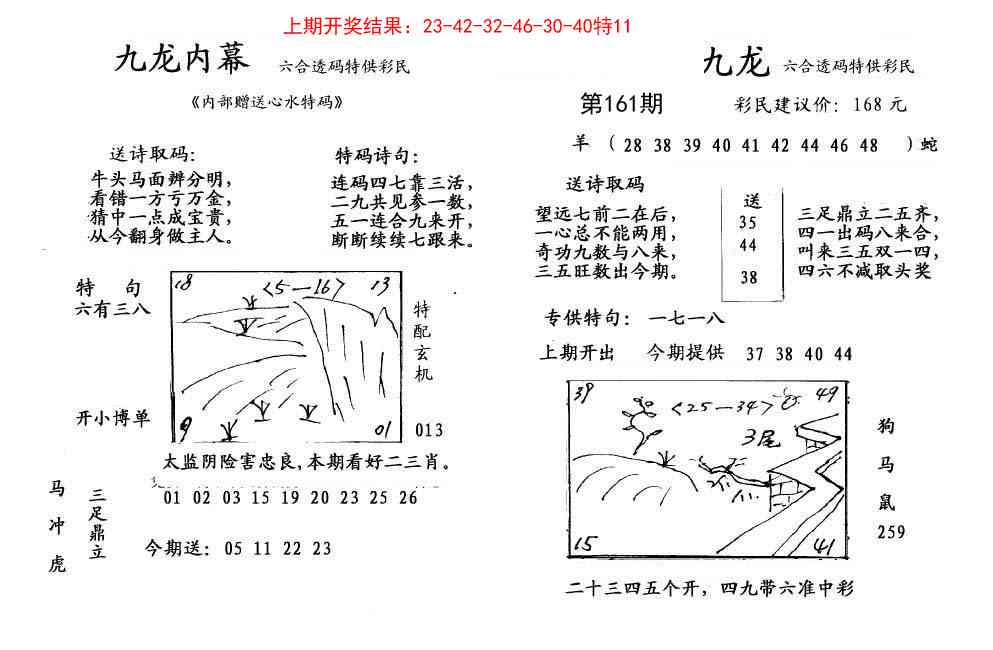 上期开奖结果：23-42-32-46-30-40特11
九龙内幕 六合透码特供彩民
《内部赠送心水特码》
送诗取码：
牛头马面辨分明，
看错一方亏万金，
猜中一点成宝贵，
从今翻身做主人。
特码诗句：
连码四七靠三活，
二九共见参一数，
五一连合九来开，
断断续续七跟来。
特 句
六有三八
开小博单
18 <5—16> 13
9 01
特配玄机
013
太监阴险害忠良，本期看好二三肖。
01 02 03 15 19 20 23 25 26
马冲虎
三足鼎立
今期送：05 11 22 23
九龙 六合透码特供彩民
第161期 彩民建议价：168元
羊（28 38 39 40 41 42 44 46 48 ）蛇
送诗取码
望远七前二在后，
一心总不能两用，
奇功九数与八来，
三五旺数出今期。
送
35
44
38
三足鼎立二五齐，
四一出码八来合，
叫来三五双一四，
四六不减取头奖
专供特句：一七一八
上期开出 今期提供 37 38 40 44
39 <25—34> 49
3尾
15 41
狗
马
鼠
259
二十三四五个开，四九带六准中彩